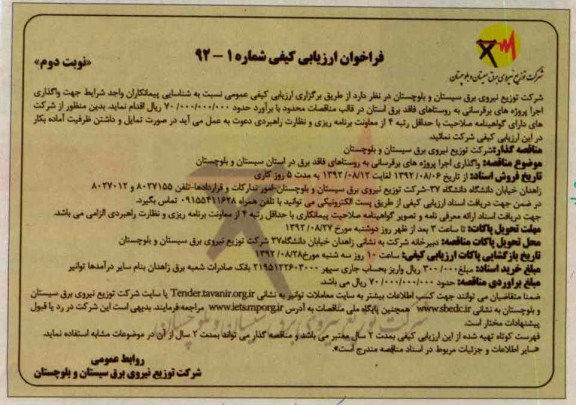 فراخوان ارزیابی کیفی شماره ۱ – ۹۲
«نوبت دوم»
شرکت توزیع نیروی برق سیستان و بلوچستان
شرکت توزیع نیروی برق سیستان و بلوچستان در نظر دارد از طریق برگزاری ارزیابی کیفی عمومی نسبت به شناسایی پیمانکاران واجد شرایط جهت واگذاری
اجرا پروژه های برقرسانی به روستاهای فاقد برق استان در قالب مناقصات محدود با برآورد حدود ۷۰/۰۰۰/۰۰۰/۰۰۰ ریال اقدام نماید. بدین منظور از شرکت
های دارای گواهینامه صلاحیت با حداقل رتبه ۴ از معاونت برنامه ریزی و نظارت راهبردی دعوت به عمل می آید در صورت تمایل و داشتن ظرفیت آماده بکار
در این ارزیابی کیفی شرکت نمائید.
مناقصه گذار: شرکت توزیع نیروی برق سیستان و بلوچستان
موضوع مناقصه: واگذاری اجرا پروژه های برقرسانی به روستاهای فاقد برق در استان سیستان و بلوچستان
تاریخ فروش اسناد: از تاریخ ۱۳۹۲/۰۸/۰۶ لغایت ۱۳۹۲/۰۸/۱۲ به مدت ۵ روز کاری
زاهدان خیابان دانشگاه دانشگاه ۳۷-شرکت توزیع نیروی برق سیستان و بلوچستان-امور تدارکات و قراردادها-تلفن ۸۰۲۷۱۵۵ و ۸۰۲۷۰۱۲ و ۸۰۲۷
در ضمن جهت دریافت اسناد ارزیابی کیفی از طریق پست الکترونیکی می توانید با تلفن همراه ۰۹۱۵۵۴۱۱۶۲۸ تماس بگیرد.
جهت دریافت اسناد ارائه معرفی نامه و تصویر گواهینامه صلاحیت پیمانکاری با حداقل رتبه ۴ از معاونت برنامه ریزی و نظارت راهبردی الزامی می باشد.
مهلت تحویل پاکات: تا ساعت ۳ بعد از ظهر روز دوشنبه مورخ ۱۳۹۲/۰۸/۲۷
محل تحویل پاکات مناقصه: دبیرخانه شرکت به نشانی زاهدان خیابان دانشگاه۳۷ شرکت توزیع نیروی برق سیستان و بلوچستان
تاریخ بازگشایی پاکات ارزیابی کیفی: ساعت ۱۰ روز سه شنبه مورخ۱۳۹۲/۰۸/۲۸
مبلغ خرید اسناد: مبلغ۳۰۰/۰۰۰ ریال واریز بحساب جاری سپهر ۲۱۹۵۱۲۲۶۰۳۰۰۰ بانک صادرات شعبه برق زاهدان بنام سایر درآمدها توانیر
مبلغ برآوردی مناقصه: حدود ۷۰/۰۰۰/۰۰۰/۰۰۰ ریال می باشد.
ضمنا متقاضیان می توانند جهت کسب اطلاعات بیشتر به سایت معاملات توانیر به نشانی Tender.tavanir.org.ir یا سایت شرکت توزیع نیروی برق سیستان
و بلوچستان به نشانی www.sbedc.ir همچنین پایگاه ملی مناقصات به آدرس www.iets.mporg.ir مراجعه فرمایند. بدیهی است این شرکت در رد یا قبول
پیشنهادات مختار است.
فهرست کوتاه تهیه شده از این ارزیابی کیفی بمدت ۲ سال معتبر می باشد و مناقصه گذار می تواند بمدت ۲ سال از آن در موضوعات مشابه استفاده نماید.
«سایر اطلاعات و جزئیات مربوط در اسناد مناقصه مندرج است»
روابط عمومی
شرکت توزیع نیروی برق سیستان و بلوچستان